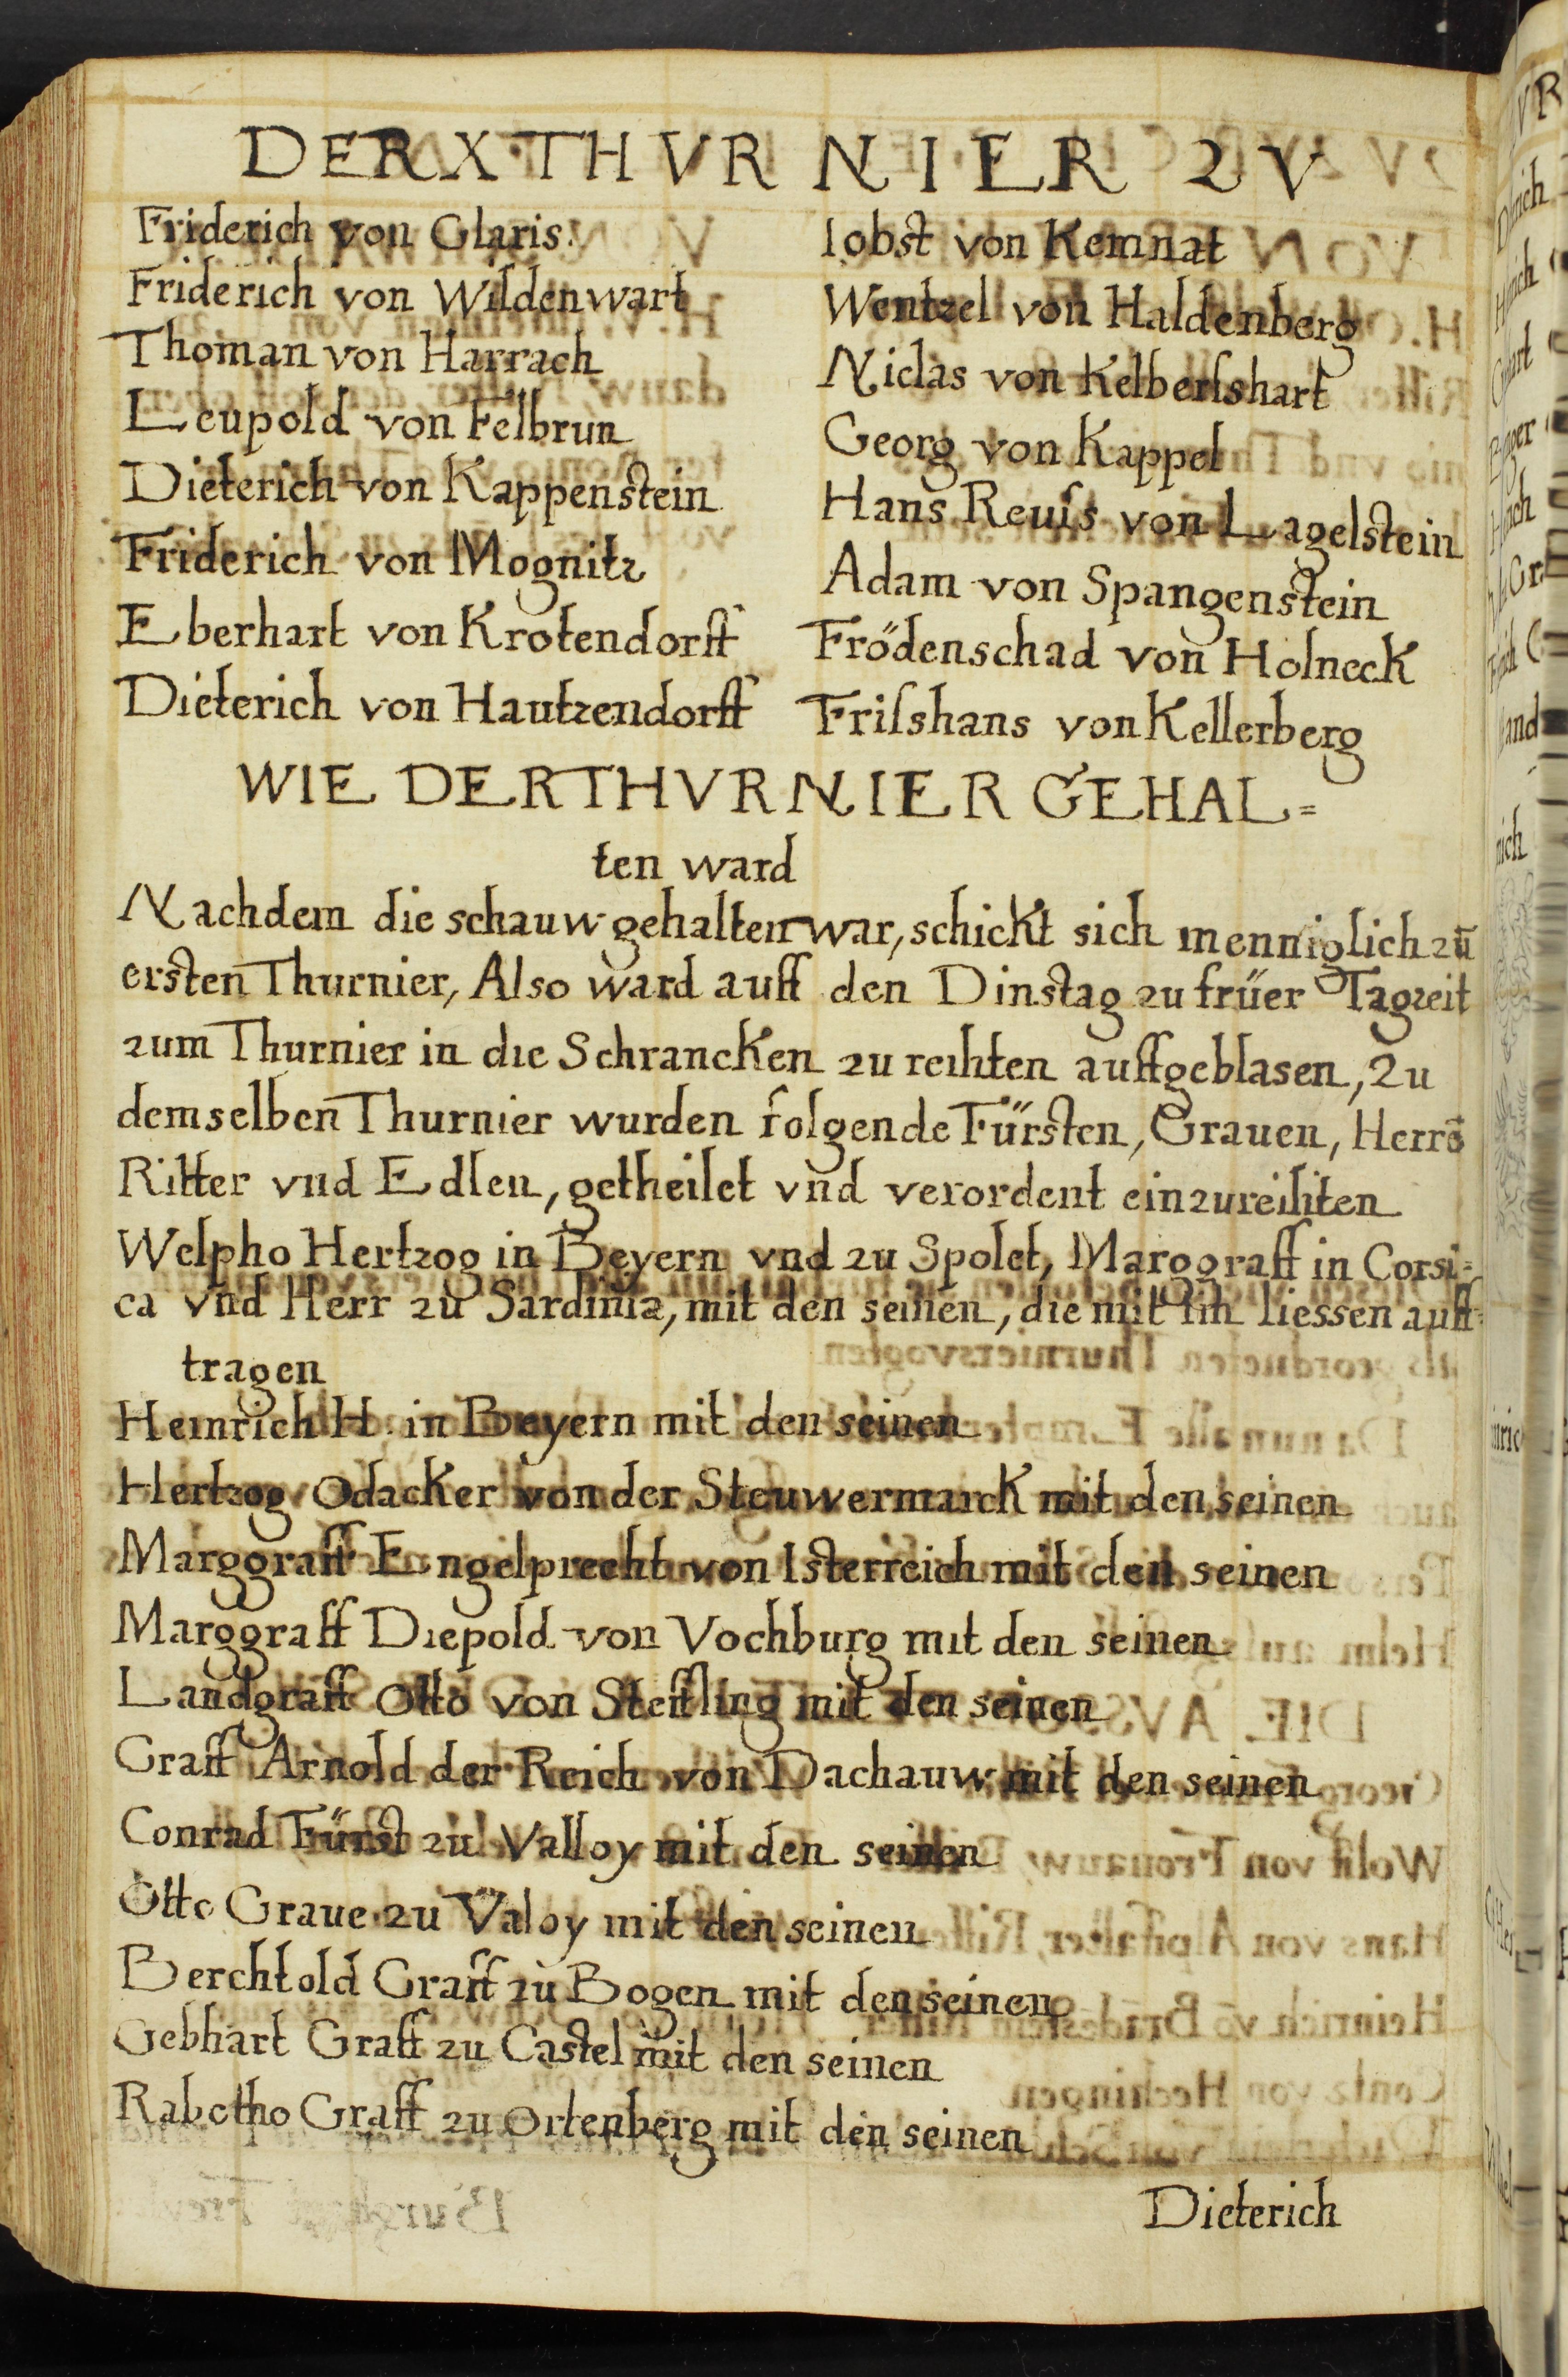 DER X. THVRNIER ZV
Friderich von Glaris.
Friderich von Wildenwart
Thoman von Harrach
Leupold von Felbrun
Dieterich von Kappenstein
Friderich von Mognitz
Eberhart von Krotendorff
Dieterich von Hautzendorff
Iobst von Kemnat
Wentzel von Haldenberg
Niclas von Kelberſshart
Georg von Kappel
Hans Reuſs von Lagelstein
Adam von Spangenstein
Frödenschad von Holneck
Friſshans von Kellerberg
WIE DER THVRNIER GEHAL=
ten ward
Nachdem die schauw gehalten war, schickt sich menniglich zū
ersten Thurnier, Also ward auff den Dinstag zu früer Tagzeit
zum Thurnier in die Schrancken zu reihten auffgeblasen, Zu
demselben Thurnier wurden folgende Fürsten, Grauen, Herrō
Ritter vnd Edlen, getheilet vnd verordent einzureihten
Welpho Hertzog in Beyern vnd zu Spolet, Marggraff in Corsi=
ca vnd Herr zu Sardinia, mit den seinen, die mit im liessen auff=
tragen
Heinrich H. in Beyern mit den seinen
Hertzog Odacker von der Steuwermarck mit den seinen
Marggraff Engelprecht von Isterreich mit den seinen
Marggraff Diepold von Vochburg mit den seinen
Landgraff Otto von Steffling mit den seinen
Graff Arnold der Reich von Dachauw mit den seinen
Conrad Fürst zu Valloy mit den seinen
Otto Graue zu Valoy mit den seinen
Berchtold Graff zu Bogen mit den seinen
Gebhart Graff zu Castel mit den seinen
Rabotho Graff zu Ortenberg mit den seinen
Dieterich